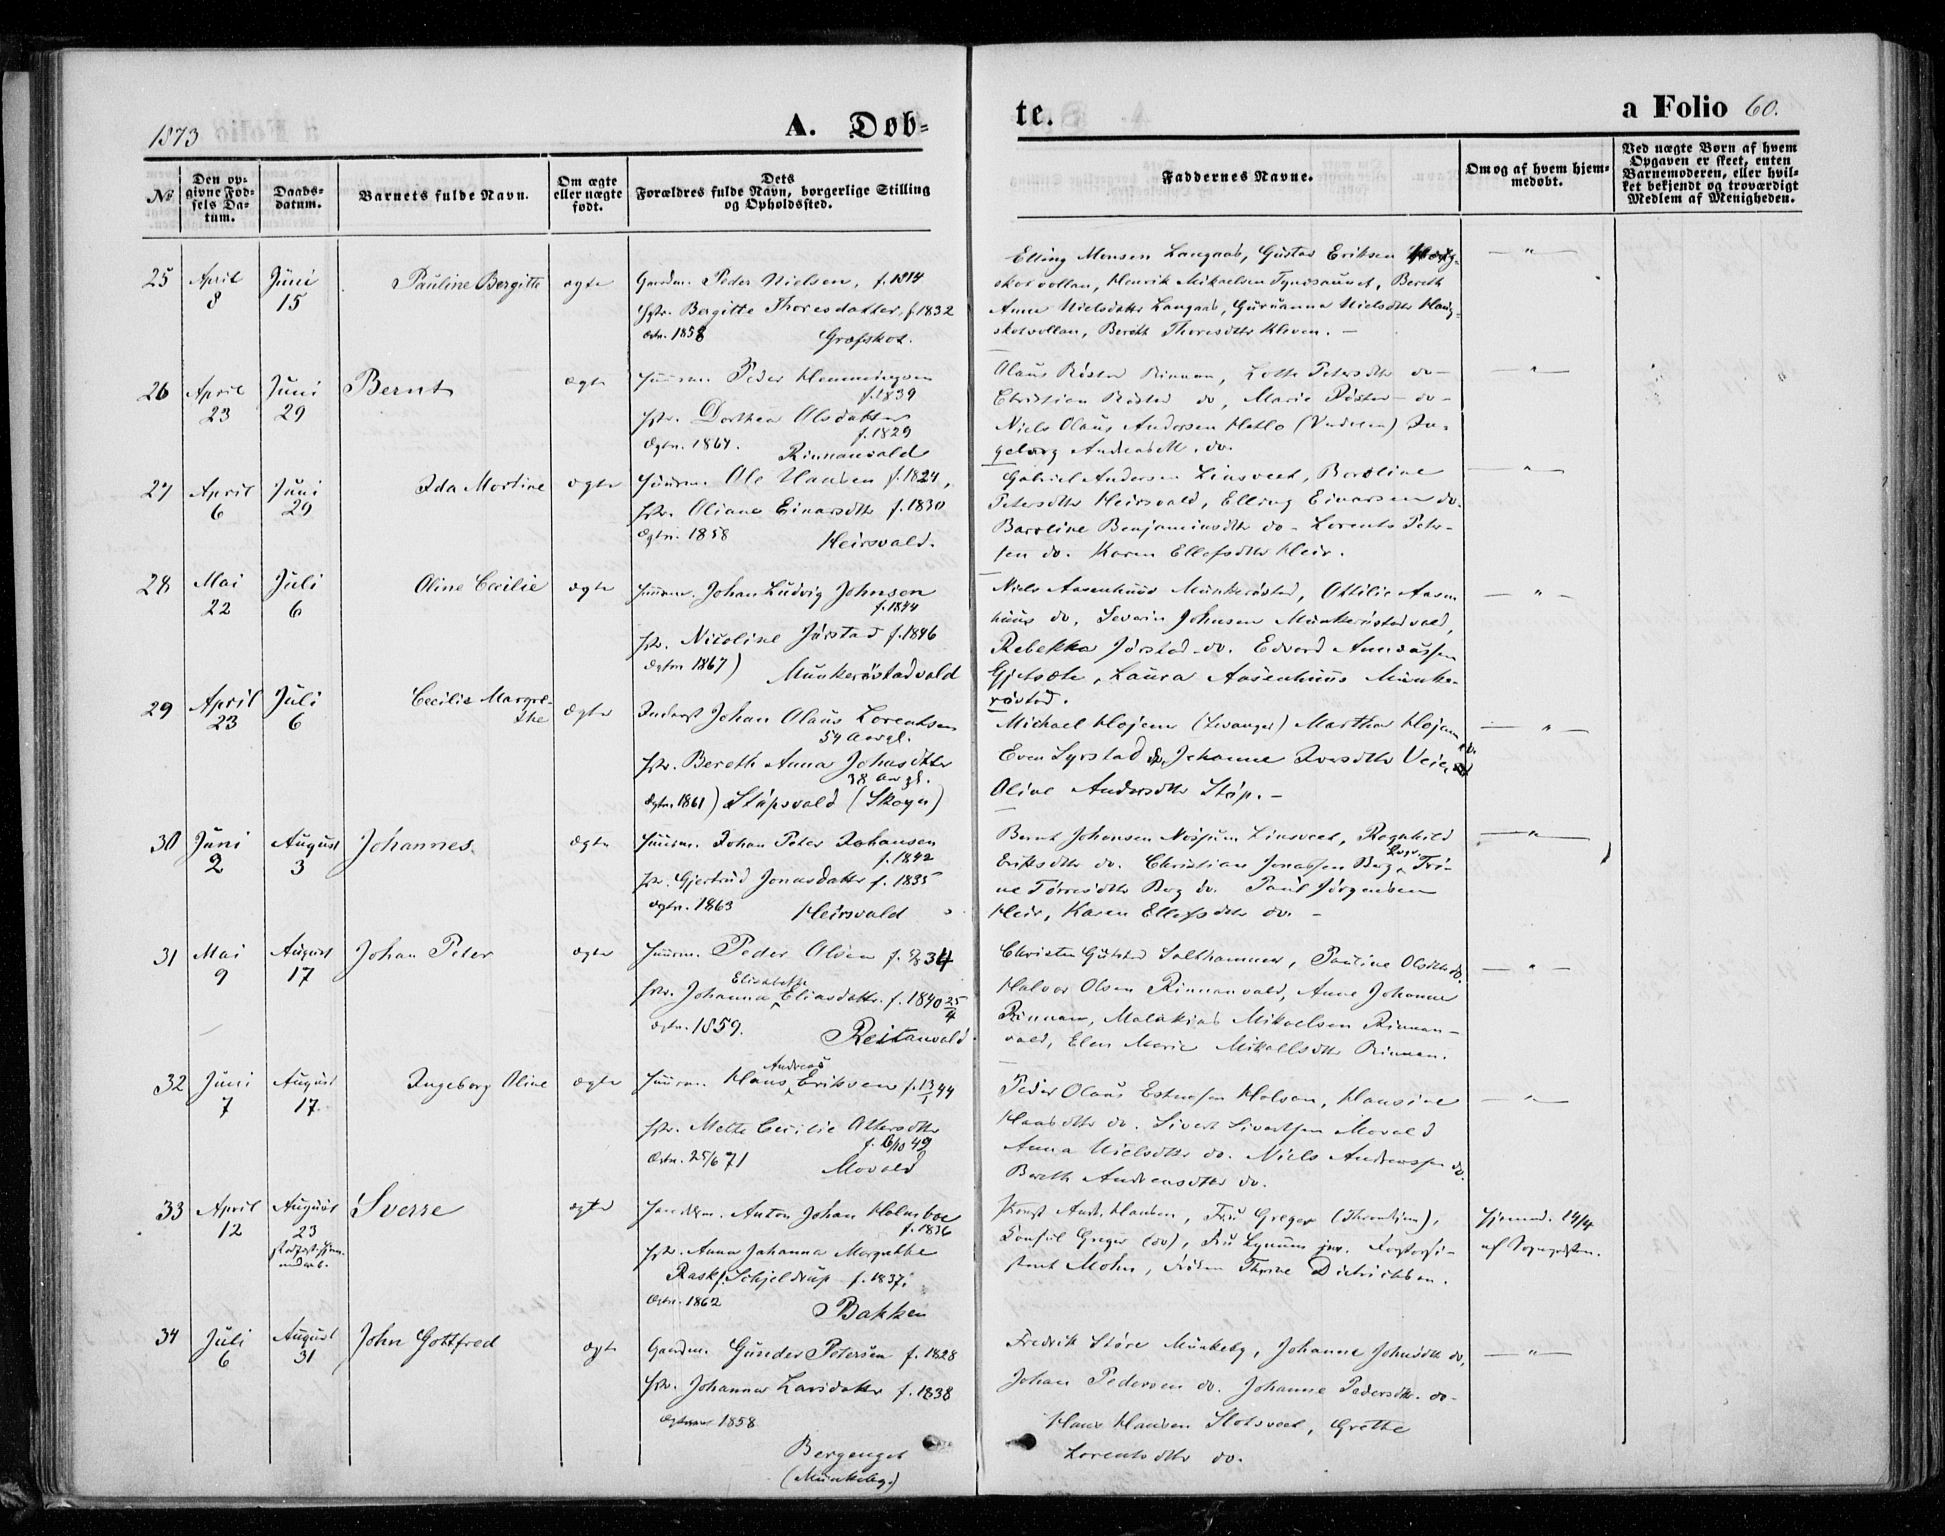 1873
A. Døb-
te.
a Folio 60.
No
Den op-
givne Fød-
sels Da-
tum.
Daabs-
datum.
Barnets fulde Navn.
Om ægte
eller uægte
født.
Dets
Forældres fulde Navn, borgerlige Stilling
og Opholdssted.
Faddernes Navne.
Om og af hvem hjem-
medøbt.
Ved uægte Børn af hvem
Opgaven er skeet, enten
Barnemoderen, eller hvil-
ket bekjendt og troværdigt
Medlem af Menigheden.
25 April 8 Juni 15 Pauline Bergitte ægte Gaardm. Peder Nielsen, f. 1814
Hstr. Bergitte Thoresdatter, f. 1832
Ægtev. 1858 Græfskot.
Elling Monsen Langaas, Gustav Eriksen
skotvollan, Henrik Mikaelsen Bereth
Anna Nielsdatter Langaas, Guruanna Nielsdtr Haug-
skotvollan, Bereth Thoresdtr Kleven. —
26 April 23 Juni 29 Bernt ægte Huusm. Peder Henningsen
f. 1839
Hstr. Dorthea Olsdatter
f. 1829
Ægtev. 1867. Rinnanvald
Olaus Røstad Rinnan, Lotte Petersdtr do —
Christian Røstad do, Marie Røstad do —
Niels Olaus Andersen Hetlo In-
geborg do.
27 April 6 Juni 29 Ida Martine ægte Huusm. Ole Hansen f. 1824,
Hstr. Oliana Einarsdtr f. 1830
Ægtev. 1858 Heirsvald.
Gabriel Andersen Linsveet, Baroline
Petersdtr Heirsvald, Elling Einarsen do.
Baroline Benjaminsdtr do — Lorents Peter-
sen do. Karen Ellefsdtr Heir.
28 Mai 22 Juli 6 Oline Cecilie ægte Huusm. Johan Ludvig Johnsen
f. 1844
Hstr. Nicoline Jørstad f. 1846
Ægtev. 1867) Munkerøstadvald
Niels Aasenhuus Munkerøstad, Ottilie Aasen
huus do, Severin Johnsen Munkerøstadvald,
Rebekka Jørstad do. Edvard
Laura Aasenhuus Munke-
røstad.
29 April 23 Juli 6 Cecilie Margre-
the ægte Inderst Johan Olaus Lorentsen
54 Aar gl.
Hstr. Bereth Anna Johnsdtr
38 Aar gl.
Ægtev. 1861) Stapsvald (Skogn)
Michael Hojem (Levanger) Martha Hojem do
Even Lyrstad do, Johanne Iversdtr
Oline Andersdtr Stap. —
30 Juni 2 August 3 Johannes. ægte Huusm. Johan Peter Johansen
f. 1842
Hstr. Gjertrud Jonasdatter f. 1835
Ægtev. 1863 Heirsvald
Bernt Johansen Linsveet, Ragnhild
Eriksdtr do. Christian Jonassen Berg, Tri-
ne Torresdtr Berg do. Paul Jørgensen
Heir, Karen Ellefsdtr do. —
31 Mai 9 August 17 Johan Peter ægte Huusm. Peder Olsen f. 1834
Hstr. Johanna Elisabeth Eliasdatter. f. 1840 25/4
Ægtev. 1859. Reitanvald
Christen Salthammer, Pauline Olsdtr do.
Halvor Olsen Rinnanvald, Anne Johanne
Rinnan, Malakias Mikaelsen Rinnan-
vald, Elen Marie Mikaelsdtr Rinnan.
32 Juni 7 August 17 Ingeborg Oline ægte Huusm. Hans Andreas Eriksen f. 13/1 44
Hstr. Mette Cecilie Ottersdtr
f. 6/10 49
Ægtev. 25/6 71 Movald
Peder Olaus Halvan, Hansine
Hansdtr do. Sivert Sivertsen Movald
Anna Nielsdtr do. Niels Andreassen do.
Bereth Andreasdtr do.
33 April 12 August 23 Sverre ægte Anton Johan Holmboe
f. 1836
Hstr. Anna Johanna Margrethe
Rask, Schjeldrup f. 1837.
Ægtev. 1862 Bakken
Hansen, Fru Greger (Throndhjem),
Konsul Greger (do), Fru Lynum jnr.
Mohn, Frøken Thrine Didrichsen.
Hjemmed. 14/4
af Sognepresten.
34 Juli 6 August 31 John Gottfred ægte Gaardm. Gunder Petersen f. 1828
Hstr. Johanna Larsdatter f. 1838
1858
Bergenget
(Munkeby)
Fredrik Støre Munkeby, Johanne Johnsdtr do,
Johan Pedersen do. Johanne Pedersdtr. do —
Hans Hansen Slotsveet, Grethe
Lorentsdtr do.